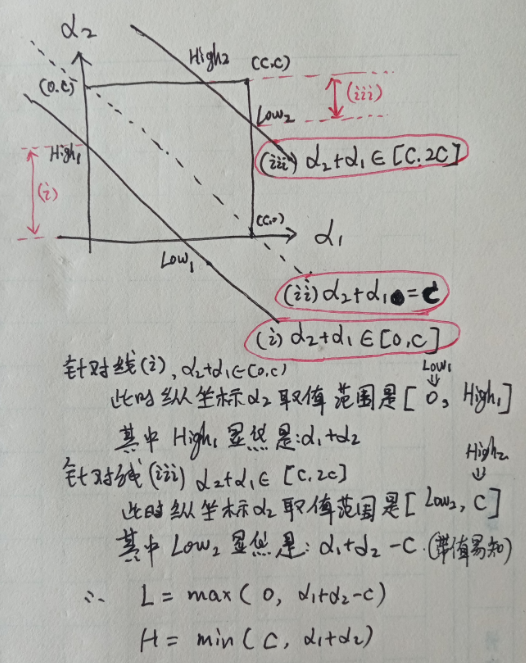 α₂
High₂
(C.C)
(0.C)
(iii)
Low₂
High₁
(iii) α₂+α₁∈[C.2C]
(i)
(C.0)
α₁
Low₁
(ii) α₂+α₁=C
(i) α₂+α₁∈[0,C]
针对线(i), α₂+α₁∈[0,C)
Low₁
⇓
此时纵坐标α₂取值范围是[0, High₁]
其中 High₁ 显然是:α₁+α₂
High₂
⇓
针对线(iii) α₂+α₁∈[C.2C]
此时纵坐标α₂取值范围是[Low₂, C]
其中 Low₂ 显然是: α₁+α₂-C.(带值易知)
∴ L = max( 0, α₁+α₂-C)
H = min( C, α₁+α₂)